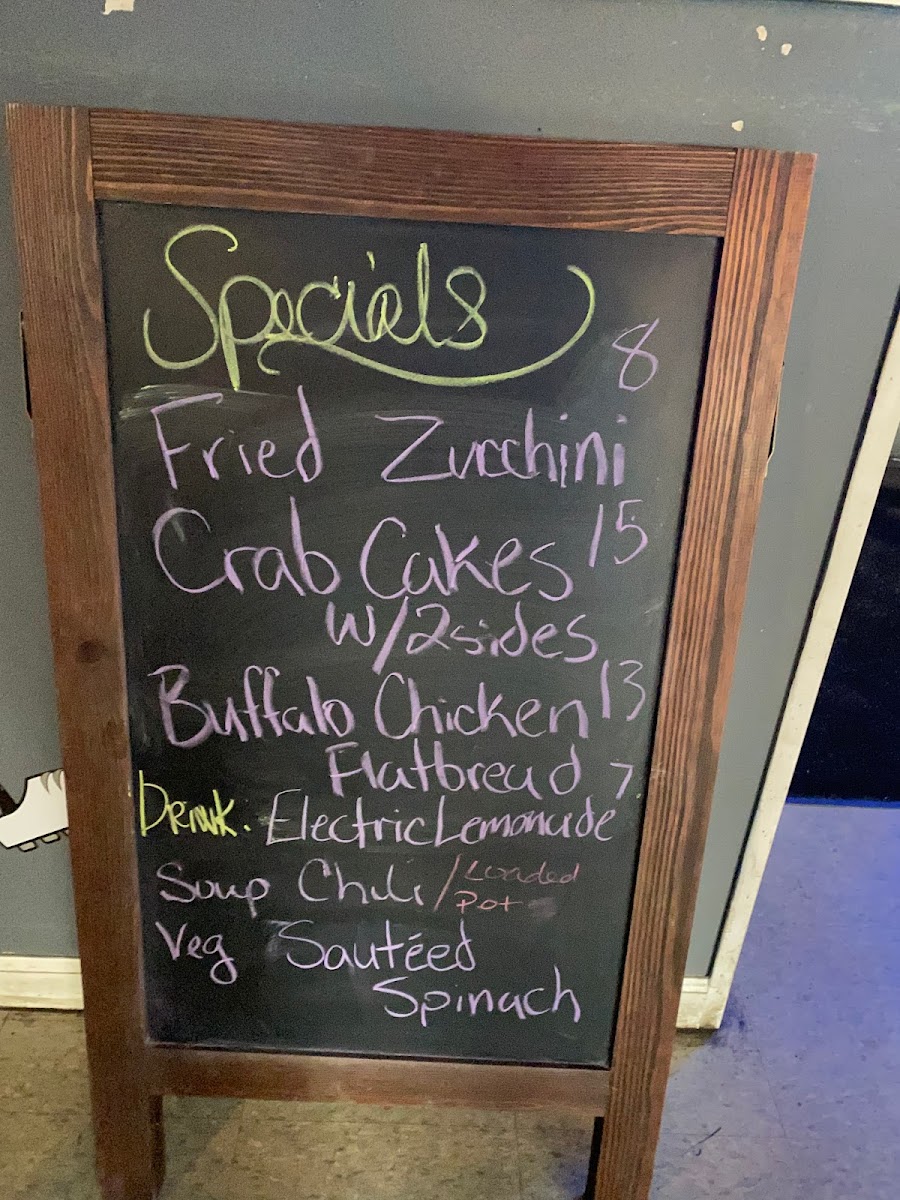 Specials
Fried Zucchini 8
Crab Cakes 15
w/2sides
Buffalo Chicken 13
Flatbread
Drink. Electric Lemonade 7
Soup Chili / Loaded
Pot
Veg Sautéed
Spinach